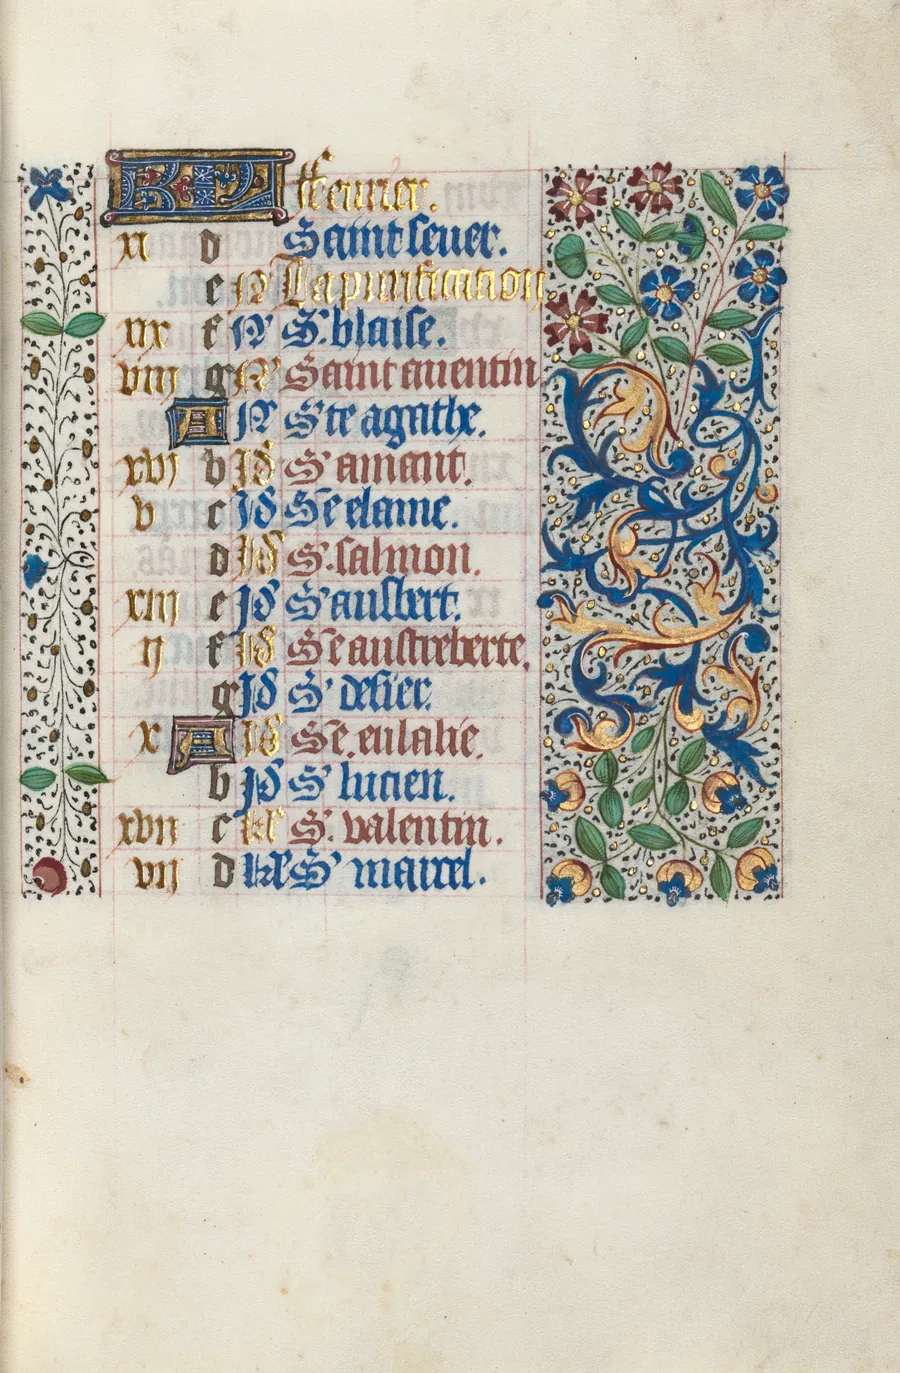 KL ffeurier.
xi d Saint seuer.
e N La purification
xix f N S. blaise.
viij g N Saint auentin
A N Ste agathe.
xvj b Id S' amant.
v c Id Se elaine.
d Id S. salmon.
xiij e Id S' ausbert.
ij f Id Se austreberte.
g Id S' desier.
x A Id Se. eulalie.
b Id S' lucien.
xvij c kl S. valentin.
vij d kl S' marcel.